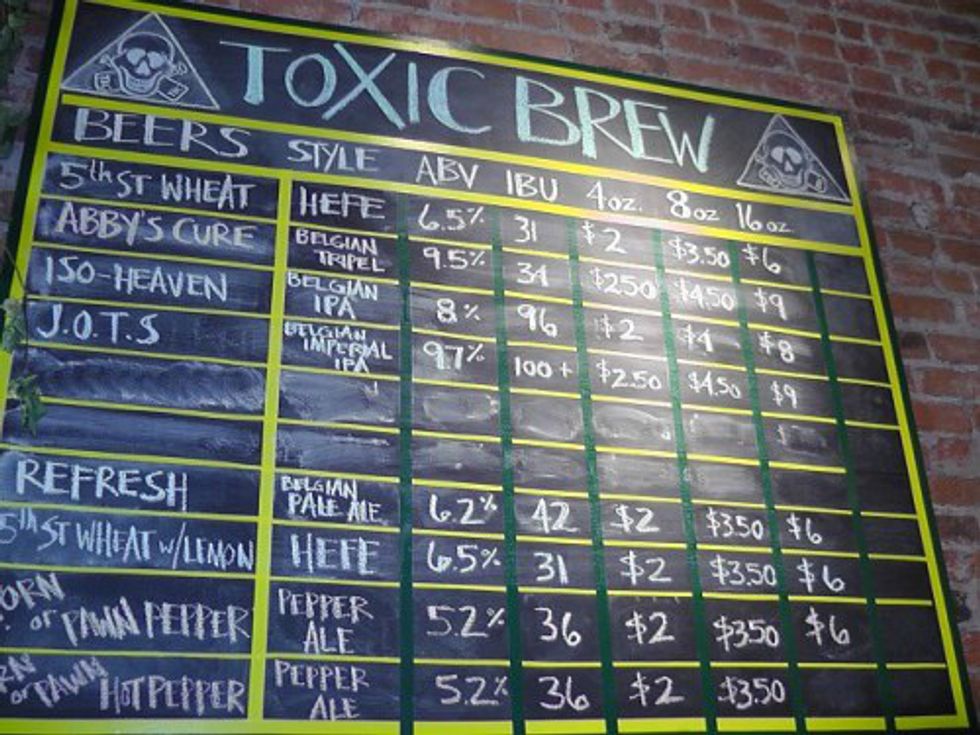 TOXIC BREW
BEERS STYLE ABV IBU 4oz. 8oz 16oz
5th ST WHEAT HEFE 6.5% 31 $2 $3.50 $6
ABBY'S CURE BELGIAN TRIPEL 9.5% 34 $2.50 $4.50 $9
ISO-HEAVEN BELGIAN IPA 8% 96 $2 $4 $8
J.O.T.S BELGIAN IMPERIAL IPA 9.7% 100+ $2.50 $4.50 $9
REFRESH BELGIAN PALE ALE 6.2% 42 $2 $3.50 $6
5th ST WHEAT w/LEMON HEFE 6.5% 31 $2 $3.50 $6
ORN or PAWN PEPPER PEPPER ALE 5.2% 36 $2 $3.50 $6
RN or PAWN HOT PEPPER PEPPER ALE 5.2% 36 $2 $3.50